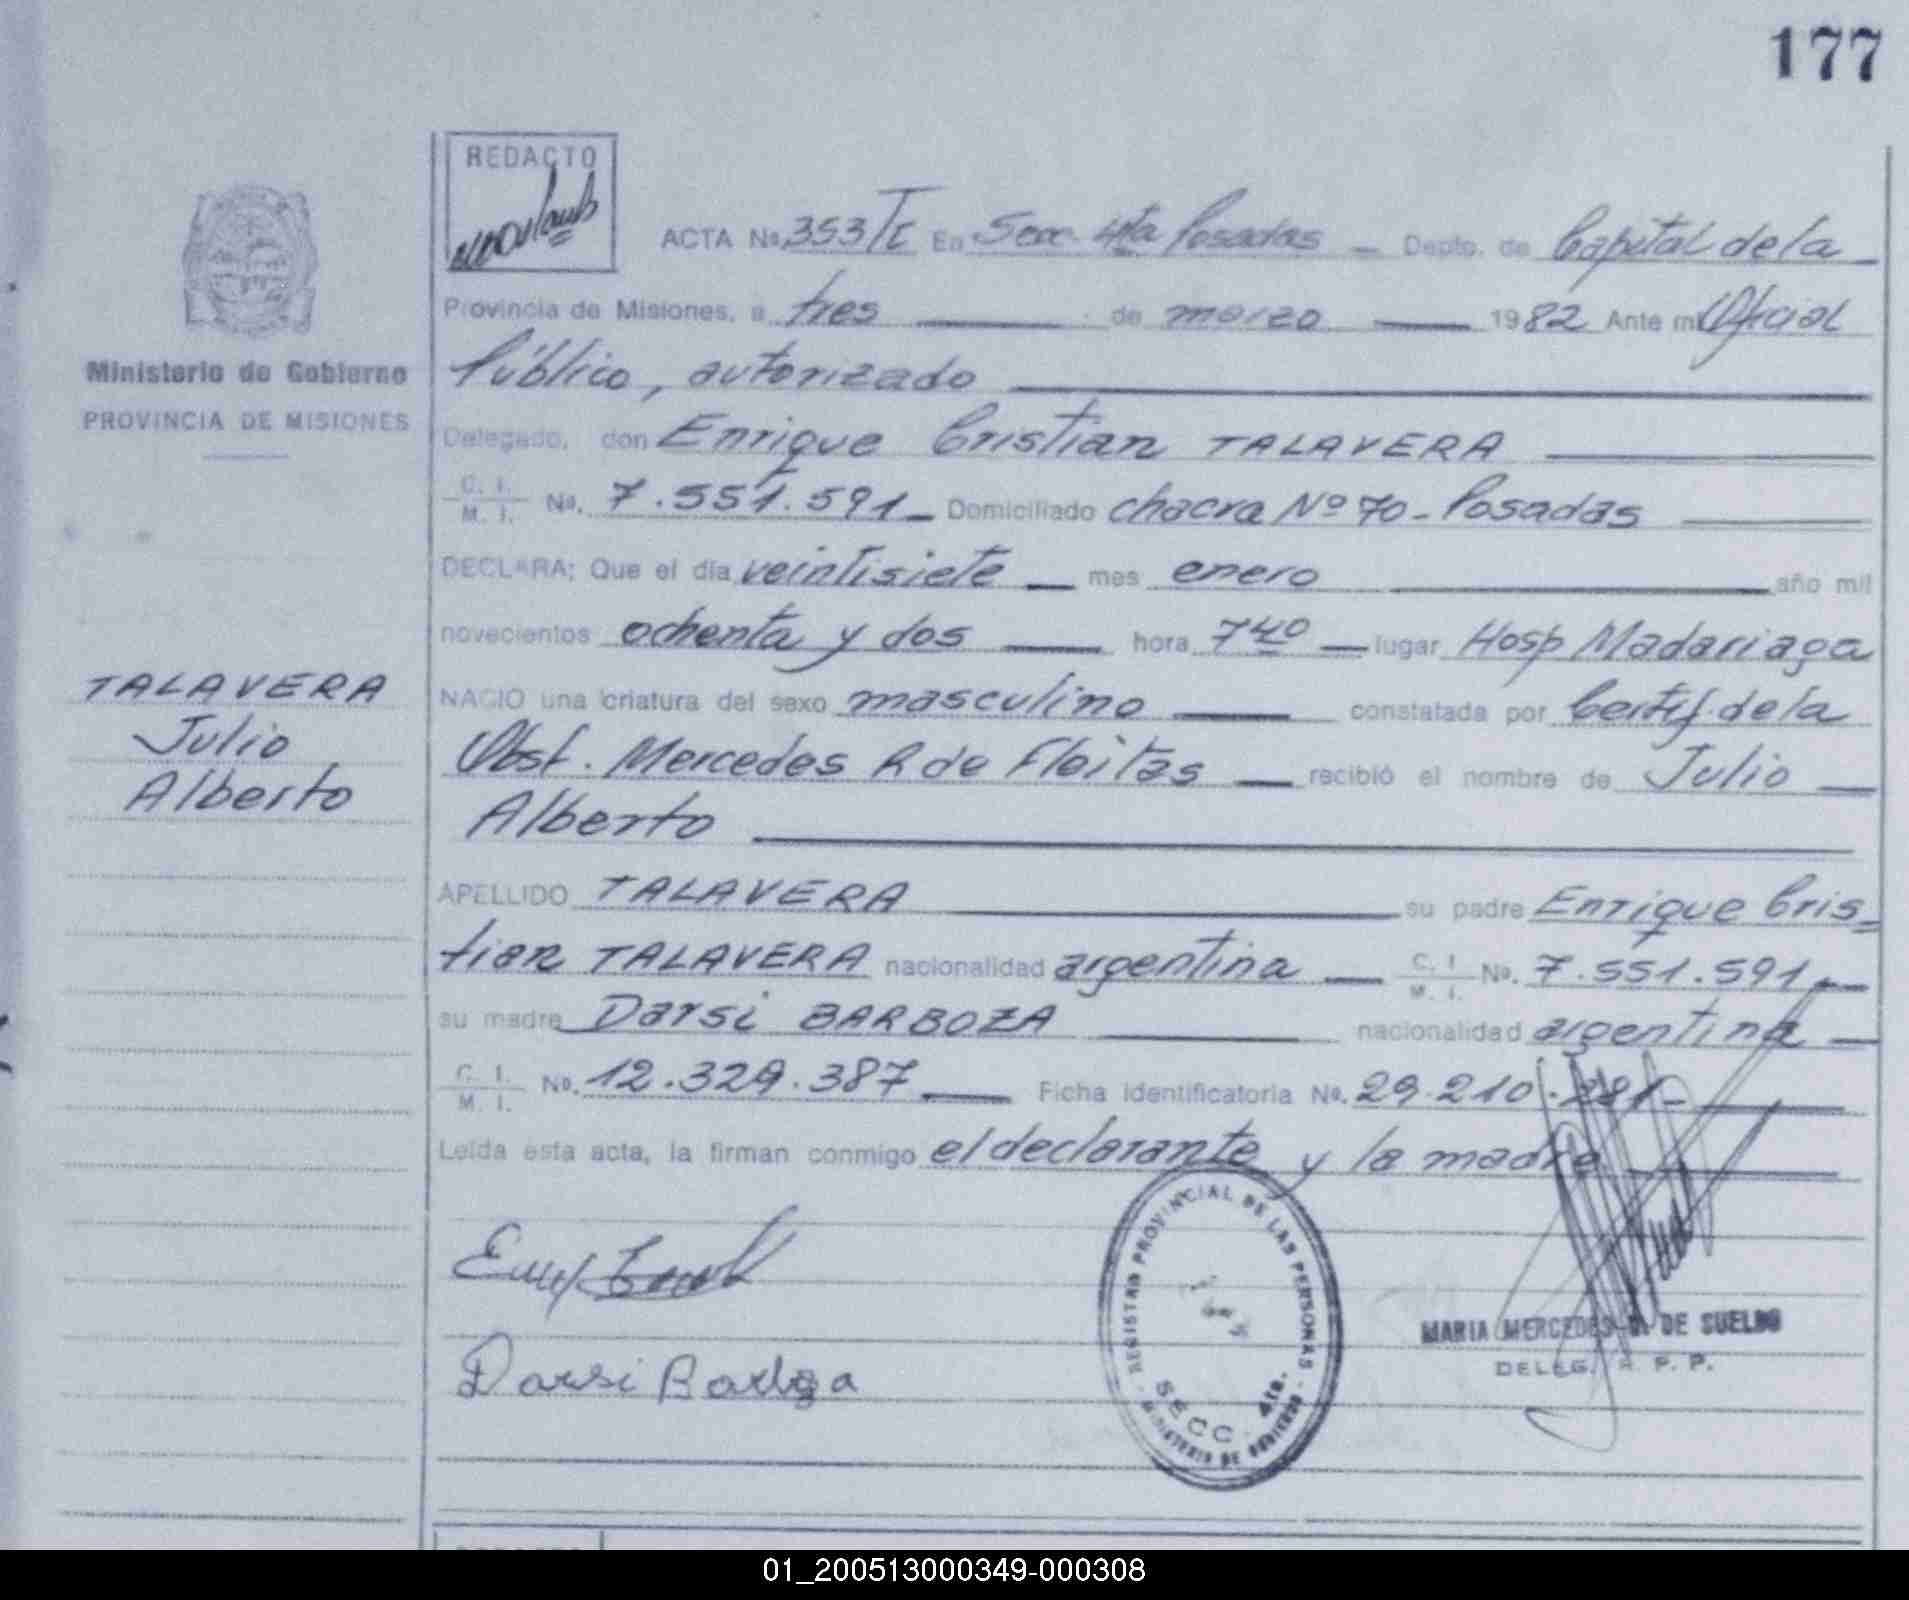 177
REDACTO
ACTA No. 353 T I En Secc. 4ta Posadas Depto. de Capital de la
Provincia de Misiones, a tres de marzo 1982 Ante mi Oficial
Público, autorizado
Ministerio de Gobierno
PROVINCIA DE MISIONES
Delegado, don Enrique Cristian TALAVERA
C. I. M. I. No. 7.551.591 Domiciliado chacra Nº 70 - Posadas
DECLARA; Que el día veintisiete mes enero año mil
novecientos ochenta y dos hora 7 40 lugar Hosp Madariaga
TALAVERA
Julio
Alberto
NACIO una criatura del sexo masculino constatada por Certif. de la
Obst. Mercedes R de Fleitas recibió el nombre de Julio
Alberto
APELLIDO TALAVERA su padre Enrique Cris=
tian TALAVERA nacionalidad argentina C. I. M. I. No. 7.551.591
su madre Darsi BARBOZA nacionalidad argentina
C. I. M. I. No. 12.329.387 Ficha identificatoria No. 29.210.281
Leída esta acta, la firman conmigo el declarante y la madre
Darsi Barboza
REGISTRO PROVINCIAL DE LAS PERSONAS
SECC. 4ta.
MINISTERIO DE GOBIERNO
MARIA MERCEDES DE SUELDO
DELEG. R. P. P.
01_200513000349-000308